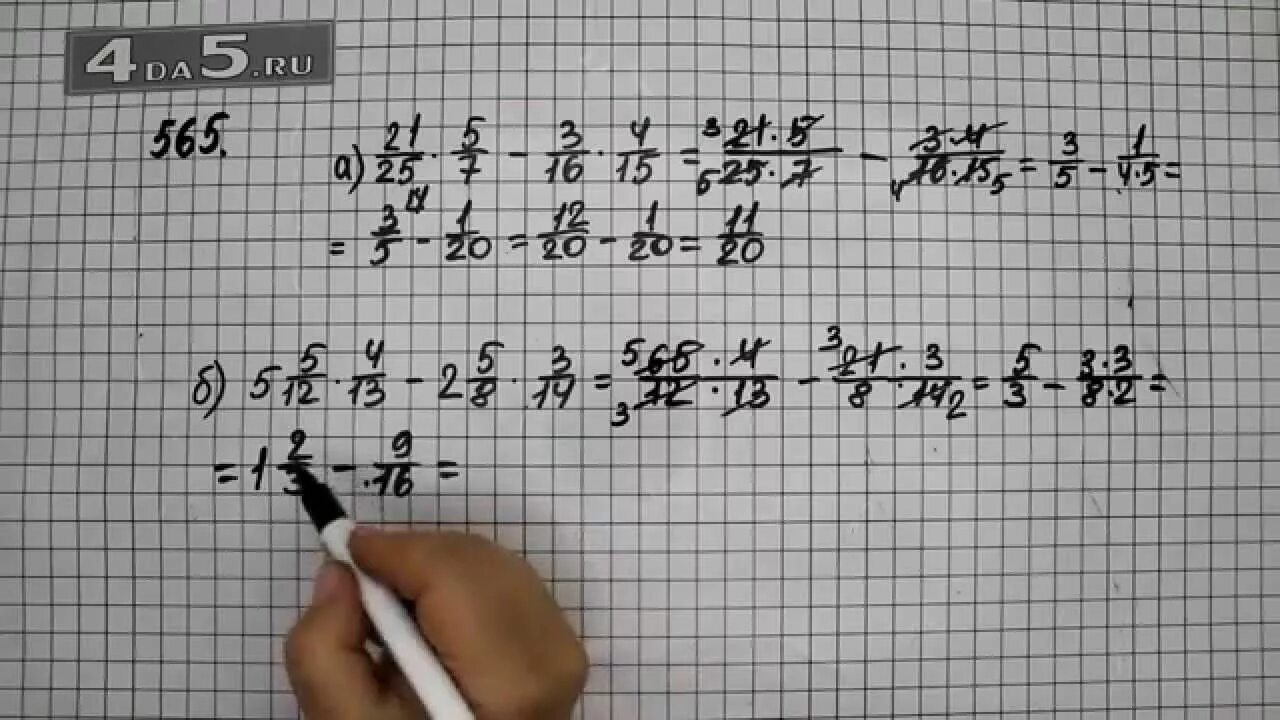 4DA5.RU
565.
а) 21/25 · 5/7 - 3/16 · 4/15 = 3 21·5 / 5 25·7 - 3·4 / 4 16·15 5 = 3/5 - 1/4·5 =
= 3/5 4 - 1/20 = 12/20 - 1/20 = 11/20
б) 5 5/12 · 4/13 - 2 5/8 · 3/14 = 5 65·4 / 3 12·13 - 3 21·3 / 8·14 2 = 5/3 - 3·3/8·2 =
= 1 2/3 - 9/16 =